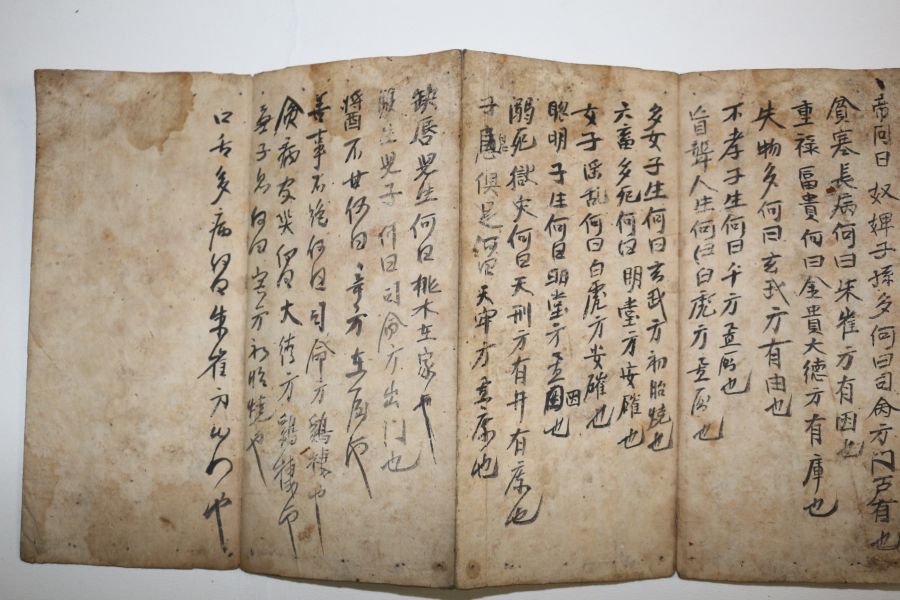 帝问曰奴婢子孫多何曰司命方門戶有也
貧塞長病何曰朱雀方有囦也
重禄畐貴何曰金貴大德方有庫也
失物多何曰玄武方有由也
不孝子生何曰千方孟厠也
盲聾人生何曰白虎方厠也
多女子生何曰玄武方初胎燒也
六畜多死何曰明堂方安確也
女子淫乱何曰白虎方安確也
聦明子生何曰明堂方也
溺死獄灾何曰天刑方有井有廩也
子息俱足何曰天牢方廩也
缺唇児生何曰桃木在家也
児子何曰司命方出门也
不甘何曰方在
善事不絶何曰司命方鷄棲也
貧病何曰大德方鷄棲也
無子息何曰方初胎燒也
口舌多病何曰朱雀方出门也